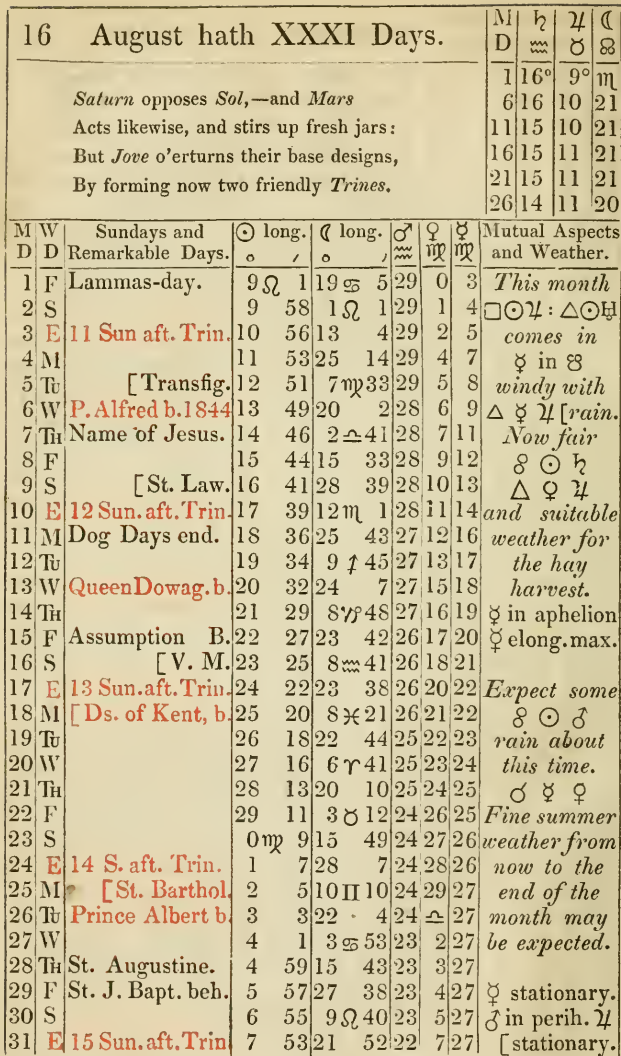 16 August hath XXXI Days.
Saturn opposes Sol,—and Mars
Acts likewise, and stirs up fresh jars:
But Jove o'erturns their base designs,
By forming now two friendly Trines.
M D ♄ ♒ ♃ ♉ ☾ ☊
1 16° 9° ♏
6 16 10 21
11 15 10 21
16 15 11 21
21 15 11 21
26 14 11 20
M W Sundays and ☉ long. ☾ long. ♂ ♀ ☿ Mutual Aspects
D D Remarkable Days. o ′ o ′ ♒ ♍ ♍ and Weather.
1 F Lammas-day. 9 ♌ 1 19 ♋ 5 29 0 3 This month
2 S 9 58 1 ♌ 1 29 1 4 □☉♃: △☉♅
3 E 11 Sun aft. Trin. 10 56 13 4 29 2 5 comes in
4 M 11 53 25 14 29 4 7 ☿ in ☋
5 Tu [Transfig. 12 51 7 ♍ 33 29 5 8 windy with
6 W P. Alfred b. 1844 13 49 20 2 28 6 9 △ ☿ ♃ [rain.
7 Th Name of Jesus. 14 46 2 ♎ 41 28 7 11 Now fair
8 F 15 44 15 33 28 9 12 ☍ ☉ ♄
9 S [St. Law. 16 41 28 39 28 10 13 △ ♀ ♃
10 E 12 Sun. aft. Trin. 17 39 12 ♏ 1 28 11 14 and suitable
11 M Dog Days end. 18 36 25 43 27 12 16 weather for
12 Tu 19 34 9 ♐ 45 27 13 17 the hay
13 W Queen Dowag. b. 20 32 24 7 27 15 18 harvest.
14 Th 21 29 8 ♑ 48 27 16 19 ☿ in aphelion
15 F Assumption B. 22 27 23 42 26 17 20 ☿ elong. max.
16 S [V. M. 23 25 8 ♒ 41 26 18 21
17 E 13 Sun. aft. Trin. 24 22 23 38 26 20 22 Expect some
18 M [Ds. of Kent, b. 25 20 8 ♓ 21 26 21 22 ☍ ☉ ♂
19 Tu 26 18 22 44 25 22 23 rain about
20 W 27 16 6 ♈ 41 25 23 24 this time.
21 Th 28 13 20 10 25 24 25 ☌ ☿ ♀
22 F 29 11 3 ♉ 12 24 26 25 Fine summer
23 S 0 ♍ 9 15 49 24 27 26 weather from
24 E 14 S. aft. Trin. 1 7 28 7 24 28 26 now to the
25 M [St. Barthol. 2 5 10 ♊ 10 24 29 27 end of the
26 Tu Prince Albert b. 3 3 22 4 24 ♎ 27 month may
27 W 4 1 3 ♋ 53 23 2 27 be expected.
28 Th St. Augustine. 4 59 15 43 23 3 27
29 F St. J. Bapt. beh. 5 57 27 38 23 4 27 ☿ stationary.
30 S 6 55 9 ♌ 40 23 5 27 ♂ in perih. ♃
31 E 15 Sun. aft. Trin 7 53 21 52 22 7 27 [stationary.